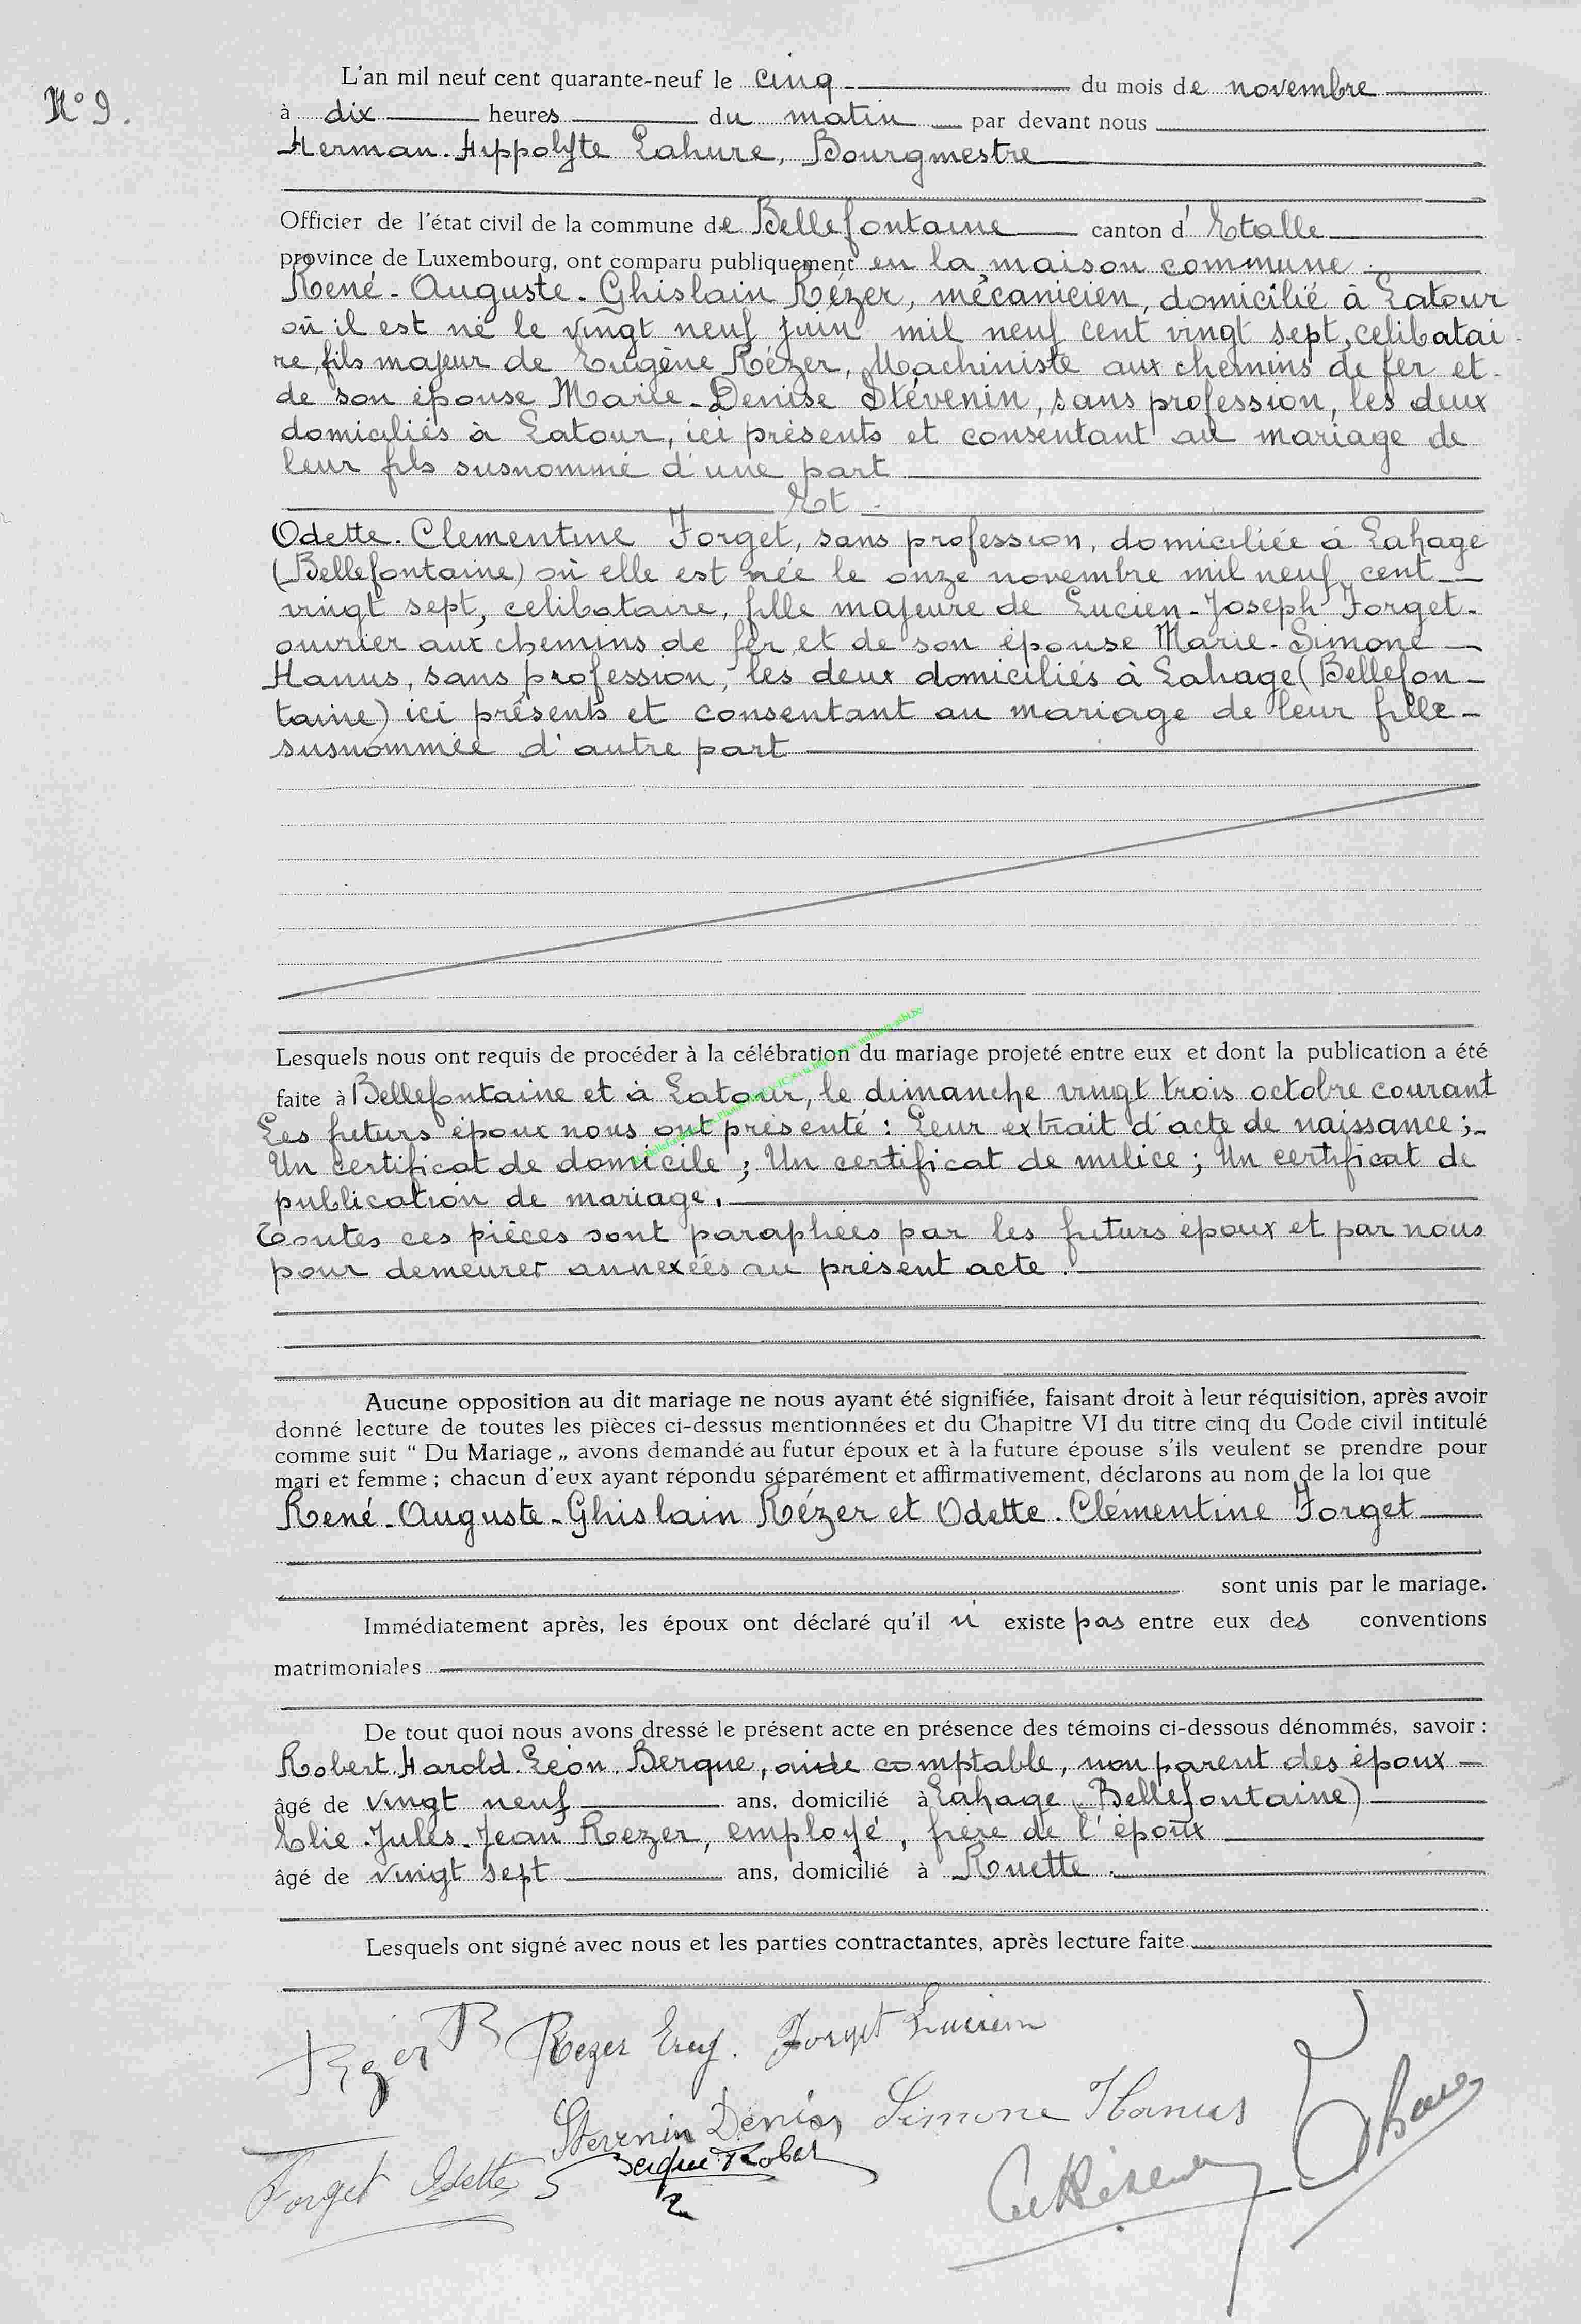 N° 9.
L'an mil neuf cent quarante-neuf le cinq du mois de novembre
à dix heures du matin par devant nous
Herman-Hippolyte Lahure, Bourgmestre
Officier de l'état civil de la commune de Bellefontaine canton d'Etalle
province de Luxembourg, ont comparu publiquement en la maison commune.
René-Auguste-Ghislain Rézer, mécanicien, domicilié à Latour
où il est né le vingt neuf juin mil neuf cent vingt sept, celibatai-
re, fils majeur de Eugène Rézer, Machiniste aux chemins de fer et
de son épouse Marie-Denise Stévenin, sans profession, les deux
domiciliés à Latour, ici présents et consentant au mariage de
leur fils susnommé d'une part
Et
Odette-Clementine Forget, sans profession, domiciliée à Lahage
(Bellefontaine) où elle est née le onze novembre mil neuf cent
vingt sept, celibataire, fille majeure de Lucien-Joseph Forget
ouvrier aux chemins de fer et de son épouse Marie-Simone
Hanus, sans profession, les deux domiciliés à Lahage (Bellefon-
taine) ici présents et consentant au mariage de leur fille
susnommée d'autre part
Lesquels nous ont requis de procéder à la célébration du mariage projeté entre eux et dont la publication a été
faite à Bellefontaine et à Latour, le dimanche vingt trois octobre courant
Les futurs époux nous ont présenté : Leur extrait d'acte de naissance ;
Un certificat de domicile ; Un certificat de milice ; Un certificat de
publication de mariage.
Toutes ces pièces sont paraphées par les futurs époux et par nous
pour demeurer annexées au présent acte.
Aucune opposition au dit mariage ne nous ayant été signifiée, faisant droit à leur réquisition, après avoir
donné lecture de toutes les pièces ci-dessus mentionnées et du Chapitre VI du titre cinq du Code civil intitulé
comme suit “ Du Mariage „ avons demandé au futur époux et à la future épouse s'ils veulent se prendre pour
mari et femme ; chacun d'eux ayant répondu séparément et affirmativement, déclarons au nom de la loi que
René-Auguste-Ghislain Rézer et Odette-Clémentine Forget
sont unis par le mariage.
Immédiatement après, les époux ont déclaré qu'il n' existe pas entre eux des conventions
matrimoniales
De tout quoi nous avons dressé le présent acte en présence des témoins ci-dessous dénommés, savoir :
Robert-Harold-Léon Berque, aide comptable, non parent des époux
âgé de vingt neuf ans, domicilié à Lahage (Bellefontaine)
Elie-Jules-Jean Rezer, employé, frère de l'époux
âgé de vingt sept ans, domicilié à Ruette.
Lesquels ont signé avec nous et les parties contractantes, après lecture faite
Rézer R Rezer Eug. Forget Lucien
Stevenin Denise Simone Hanus
Forget Odette Berque Robert